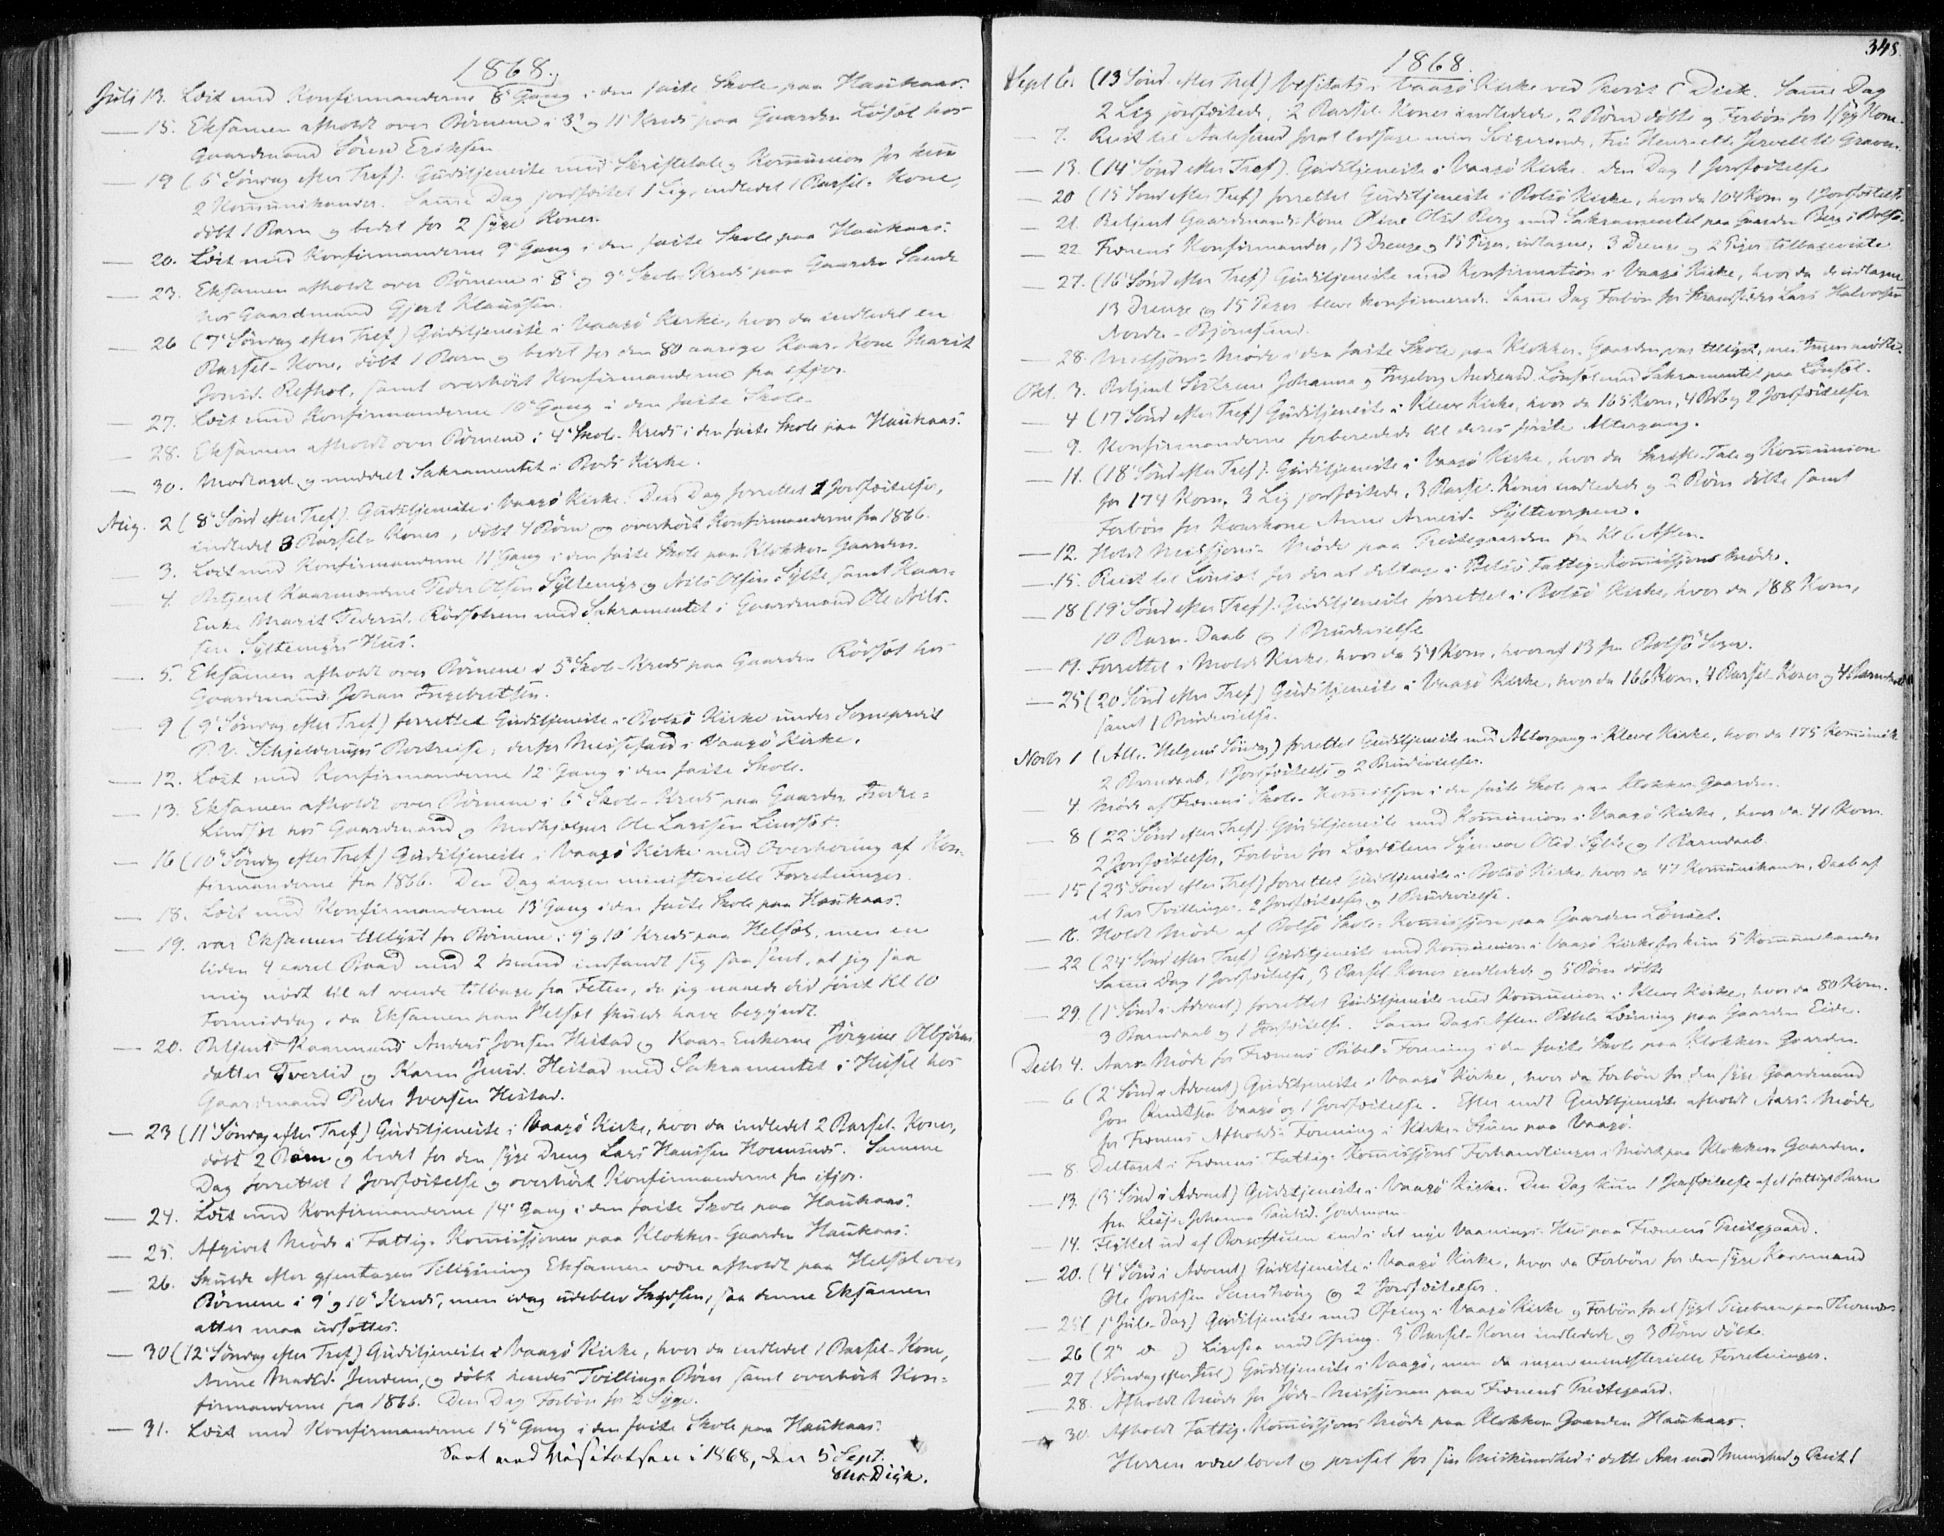 1868.
Juli 13. Læst med Konfirmanderne 8de Gang i den faste Skole paa Haukaas.
— 15. Eksamen afholdt over Børnene i 3' og 11' Kreds paa Gaarden hos
Gaardmand Sören Eriksen
— 19 (6' Søndag efter Tref). Gudstjeneste med Skriftetale og Kommunion for kun
2 Kommunikanter. Samme Dag jordfæstet 1 Lig, indledet 1 Barsel-Kone,
döbt 1 Barn og bedet for 2 syge Koner.
— 20. Læst med Konfirmanderne 9' Gang i den faste Skole paa Haukaas.
— 23. Eksamen afholdt over Børnene i 8' og 9' Skole-Kreds paa Gaarden Sande
hos Gaardmand Gjert Klaussen.
— 26 (7' Søndag efter Tref) Gudstjeneste i Vaagö Kirke, hvor da indledet en
Barsel-Kone, döbt 1 Barn og bedet for den 80 aarige Kaar-Kone Marit
samt overhört Konfirmanderne fra ifjor.
— 27. Læst med Konfirmanderne 10' Gang i den faste Skole.
— 28. Eksamen afholdt over Børnene i 4' Skole-Kreds i den faste Skole paa Haukaas.
— 30. Modtaget og meddelt Sakramentet i Bods Kirke.
Aug. 2 (8' Sönd efter Tref). Gudstjeneste i Vaagö Kirke. Den Dag forrettet 1 Jordfæstelse,
indledet 3 Barsel-Koner, döbt 4 Börn og overhört Konfirmanderne fra 1866.
— 3. Læst med Konfirmanderne 11' Gang i den faste Skole paa Klokker-Gaarden.
— 4. Betjent Kaarmændene Peder Olsen Syltemyr og Nils Olsen Sylte samt Kaar-
Enke Marit Pedersd. med Sakramentet i Gaardmand Ole Nils-
sen Syltemyrs Hus.
— 5. Eksamen afholdt over Børnene i 5' Skole-Kreds paa Gaarden Rödsöt hos
Gaardmand Johan Ingebrektsen.
— 9 (9' Søndag efter Tref) forrettet Gudstjeneste i Bolsö Kirke under Sogneprest
P. V. Schjelderups Bortreise; derfor Messefald i Vaagö Kirke.
— 12. Læst med Konfirmanderne 12' Gang i den faste Skole.
— 13. Eksamen afholdt over Børnene i 6' Skole-Kreds paa Gaarden Indre-
Lindset hos Gaardmand og Medhjælper Ole Larssen Lindset.
— 16 (10' Søndag efter Tref) Gudstjeneste i Vaagö Kirke med Overhøring af Kon-
firmanderne fra 1866. Den Dag ingen ministerielle Forretninger.
— 18. Læst med Konfirmanderne 13' Gang i den faste Skole paa Haukaas.
— 19. var Eksamen tillyst for Børnene i 9' og 10' Kreds paa Helset, men en
liden 4 aaret Baad med 2 Mand indfandt sig saa sent, at jeg saa
mig nödt til at vende tilbage fra Feten, da jeg naaede did först Kl 10
Formiddag, da Eksamen paa Helset skulde have begyndt.
— 20. Betjent Kaarmand Anders Jonsen Hestad og Kaar-Enkerne Jörgine Olbjörns-
datter Tverlid og Karen Hestad med Sakramentet i Huset hos
Gaardmand Peder Iversen Hestad.
— 23 (11' Søndag efter Tref) Gudstjeneste i Vaagö Kirke, hvor da indledet 2 Barsel-Koner,
döbt 2 Börn og bedet for den syge Dreng Lars Hanssen. Samme
Dag forrettet 1 Jordfæstelse og overhört Konfirmanderne fra ifjor.
— 24. Læst med Konfirmanderne 14' Gang i den faste Skole paa Haukaas.
— 25. Afgivet Möde i Fattig-Kommissjonen paa Klokker-Gaarden Haukaas.
— 26. Skulde efter gjentagen Tillysning Eksamen være afholdt paa Helset over
Børnene i 9' og 10' Kreds, men idag udeblev Skydsen, saa denne Eksamen
atter maa udsættes.
— 30 (12' Søndag efter Tref) Gudstjeneste i Vaagö Kirke, hvor da indledet 1 Barsel-Kone,
Anne og döbt hendes Tvillinge-Börn samt overhört Kon-
firmanderne fra 1866. Den Dag Forbön for 2 Syge.
— 31. Læst med Konfirmanderne 15' Gang i den faste Skole paa Haukaas.
Seet ved Visitatsen i 1868, den 5 Sept.
Chr. Dick.
348
1868.
Sept 6. (13 Sönd efter Tref) Visitats i Vaagö Kirke ved Provst C Dick. Samme Dag
2 Lig jordfæstede, 2 Barsel-Koner indledede, 2 Börn döbte og Forbön for 1 syg Kone.
— 7. Reist til Aalesund for at ledsage min Svigerinde, Henriette
— 13. (14' Sönd efter Tref). Gudstjeneste i Vaagö Kirke. den Dag 1 Jordfæstelse
— 20 (15 Sönd efter Tref) forrettet Gudstjeneste i Bolsö Kirke, hvor da 104 Kom. og 1 Jordfæstelse
— 21. Betjent Gaardmands-Kone Oline Olsd Berg med Sakramentet paa Gaarden Berg i Bolsö.
— 22. Frænens Konfirmander, 13 Drenge og 15 Piger, indtagne; 3 Drenge og 2 Piger tilbageviste
— 27. (16' Sönd efter Tref) Gudstjeneste med Konfirmation i Vaagö Kirke, hvor da de indtagne
13 Drenge og 15 Piger bleve konfirmerede. Samme Dag Forbön for Lars Halvorsen
Nordre-Björnsund.
— 28. Missjons-Möde i den faste Skole paa Klokker-Gaarden var tillyst, men Ingen mödte.
Okt. 3. Betjent Söstrene Johanna og Ingeborg Andreasd. Lönset med Sakramentet paa Lönset.
— 4 (17 Sönd efter Tref) Gudstjeneste i Kleve Kirke, hvor da 165 Kom, 4 Brb og 2 Jordfæstelser
— 9. Konfirmanderne forberedede til deres förste Altergang.
— 11. (18' Sönd efter Tref). Gudstjeneste i Vaagö Kirke, hvor da Skrifte-Tale og Kommunion
for 174 Kom. 3 Lig jordfæstede, 3 Barsel-Koner indledede og 2 Börn döbte samt
Forbön for Kaarkone Anne
— 12. Holdt Missjons-Möde paa Prestegaarden fra Kl 6 Aften.
— 15. Reist til Lönset for der at deltage i Bolsö Fattig-Kommissjons Möde.
— 18 (19' Sönd efter Tref). Gudstjeneste forrettet i Bolsö Kirke, hvor da 188 Kom,
10 Barn-Daab og 1 Brudevielse
— 19. Forrettet i Molde Kirke, hvor da 54 Kom, hvoraf 13 fra Bolsö Sogn.
— 25 (20 Sönd efter Tref) Gudstjeneste i Vaagö Kirke, hvor da 166 Kom, 4 Barsel Koner og 4 Barnedaab
samt 1 Brudevielse.
Novbr 1 (Alle-Helgens Söndag) forrettet Gudstjeneste med Altergang i Kleve Kirke, hvor da 175 Kommunik
2 Barnedaab, 1 Jordfæstelse og 2 Brudevielser.
— 4 Möde af Frænens Skole-Kommissjon i den faste Skole paa Klokker-Gaarden.
— 8 (22 Sönd efter Tref). Gudstjeneste med Kommunion i Vaagö Kirke, hvor da 41 Kom.
2 Jordfæstelser, Forbön for og 1 Barnedaab.
— 15 (23' Sönd efter Tref) forrettet Gudstjeneste i Bolsö Kirke, hvor da 47 Kommunikanter, Daab af
et Par Tvillinger, 2 Jordfæstelser og 1 Brudevielse.
— 16. Holdt Möde af Bolsö Skole-Kommissjon paa Gaarden Lönset.
— 22 (24' Sönd efter Tref) Gudstjeneste med Kommunion i Vaagö Kirke for kun 5 Kommunikanter
Samme Dag 1 Jordfæstelse, 3 Barsel-Koner indledede og 5 Börn döbte
— 29. (1' Sönd i Advent) forrettet Gudstjeneste med Kommunion i Kleve Kirke, hvor da 80 Kom.
3 Barnedaab og 1 Jordfæstelse. Samme Dags Aften Bibel-Læsning paa Gaarden Eide.
Decbr 4. Aars-Möde for Frænens Bibel-Forening i den faste Skole paa Klokker-Gaarden.
— 6 (2' Sönd i Advent) Gudstjeneste i Vaagö Kirke, hvor da Forbön for den syge Gaardmand
Jon Knudsen Vaagö og 1 Jordfæstelse. Efter endt Gudstjeneste afholdt Aars-Möde
for Frænens Afholds-Forening i Kirke-Stuen paa Vaagö.
— 8. Deltaget i Frænens Fattig-Kommissjons Forhandlinger i Möde paa Klokker-Gaarden.
— 13. (3' Sönd i Advent) Gudstjeneste i Vaagö Kirke. Den Dag kun 1 Jordfæstelse af et fattigt Barn
fra Johanna
— 14. Flyttet ud af Borgestuen ind i det nye Vaanings-Hus paa Frænens Prestegaard.
— 20. (4' Sönd i Advent) Gudstjeneste i Vaagö Kirke, hvor da Forbön for den syge Kaarmand
Ole Jonssen og 2 Jordfæstelser.
— 25 (1' Jule-Dag) Gudstjeneste med Ofring i Vaagö Kirke og Forbön for et sygt Pigebarn paa
— 26 (2' do ) Ligesaa med Ofring. 3 Barsel-Koner indledede og 3 Börn döbte.
— 27 (Söndag efter Jul) Gudstjeneste i Vaagö, men da ingen ministerielle Forretninger.
— 28. Afholdt Möde for Jöde-Missjonen paa Frænens Prestegaard.
— 30. Afholdt Fattig-Kommissjons Möde paa Klokker-Gaarden Haukaas.
Herren være lovet og priset for sin Miskundhed i dette Aar mod Menighed og Prest!